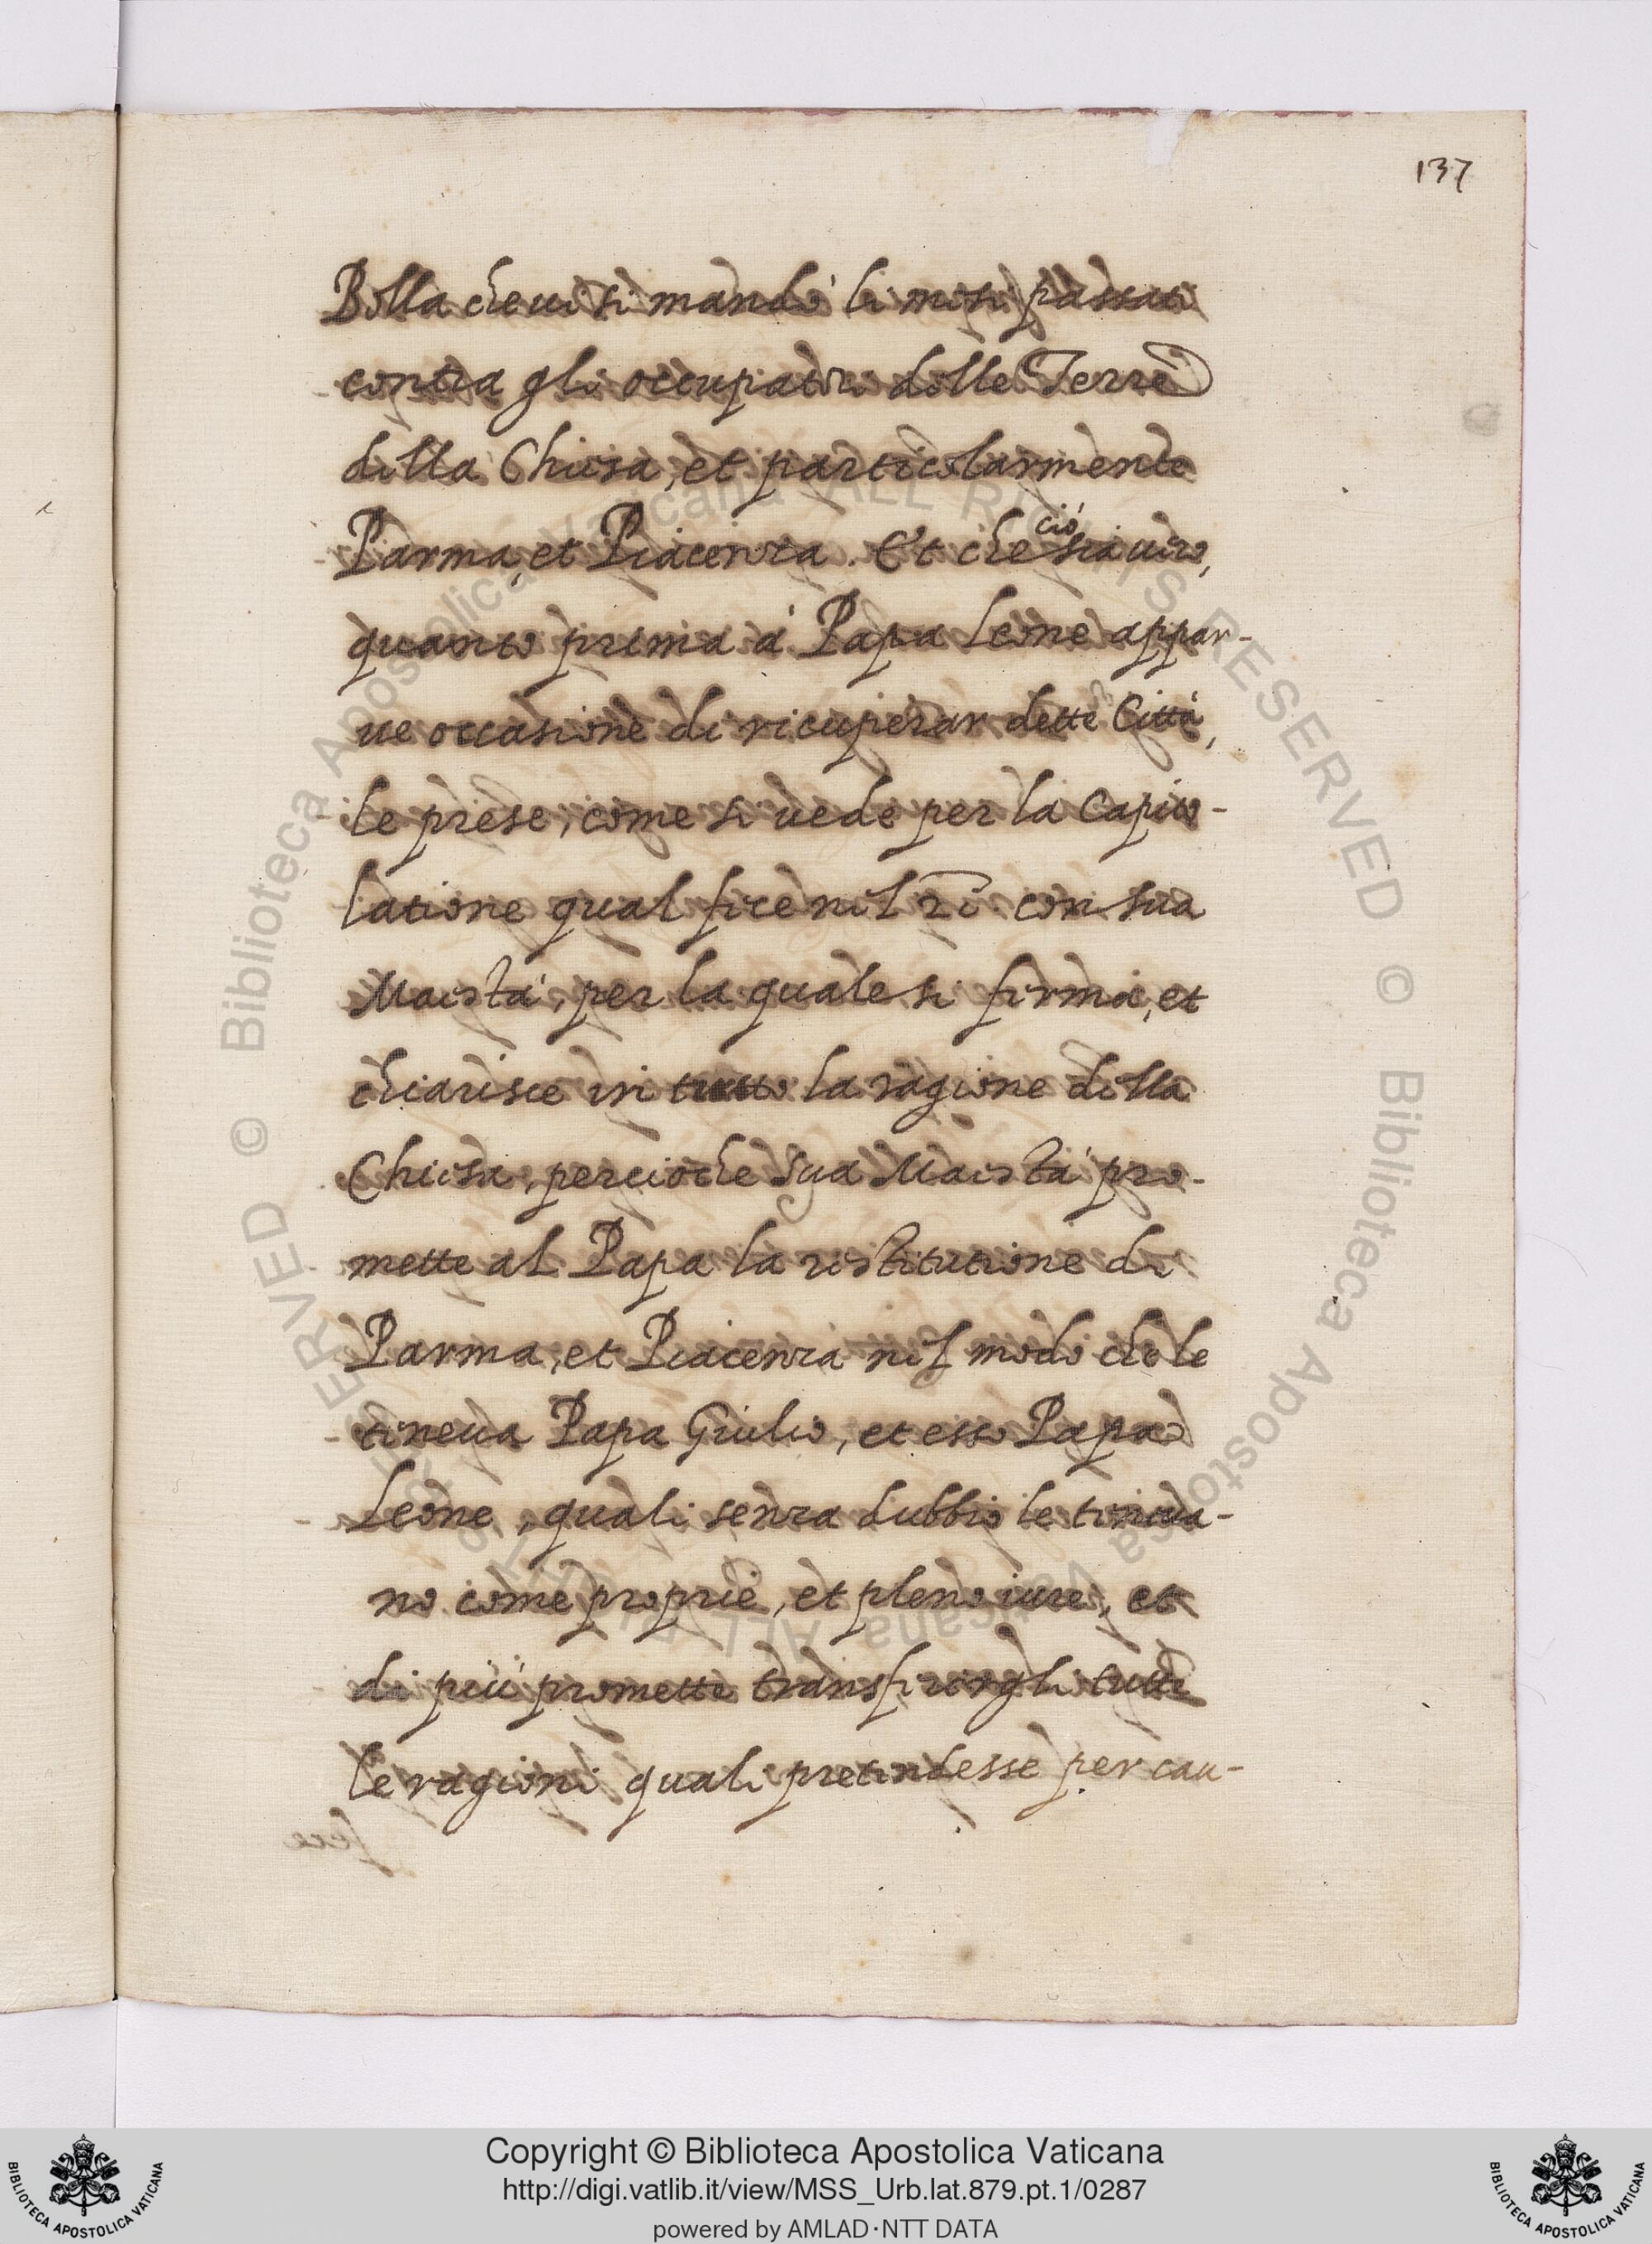 137
Bolla che vi si mandò li mesi passati
contra gli occupatori delle Terre
della Chiesa, et particolarmente
Parma, et Piacenza. Et che ciò sia vero,
quanto prima à Papa Leone appar-
ue occasione di ricuperar dette Città,
le prese, come si uede per la Capito-
latione qual fece nel 21. con sua
Maestà, per la quale si firma, et
chiarisce in tutto la ragione della
Chiesa, percioche Sua Maestà pro-
mette al Papa la restitutione di
Parma, et Piacenza nel modo che le
teneua Papa Giulio, et esso Papa
Leone, quali senza dubbio le teneua-
no come proprie, et pleno iure, et
di più promette transferirgli tutte
le ragioni quali pretendesse per cau-
Copyright © Biblioteca Apostolica Vaticana
http://digi.vatlib.it/view/MSS_Urb.lat.879.pt.1/0287
powered by AMLAD·NTT DATA
BIBLIOTECA APOSTOLICA VATICANA
BIBLIOTECA APOSTOLICA VATICANA